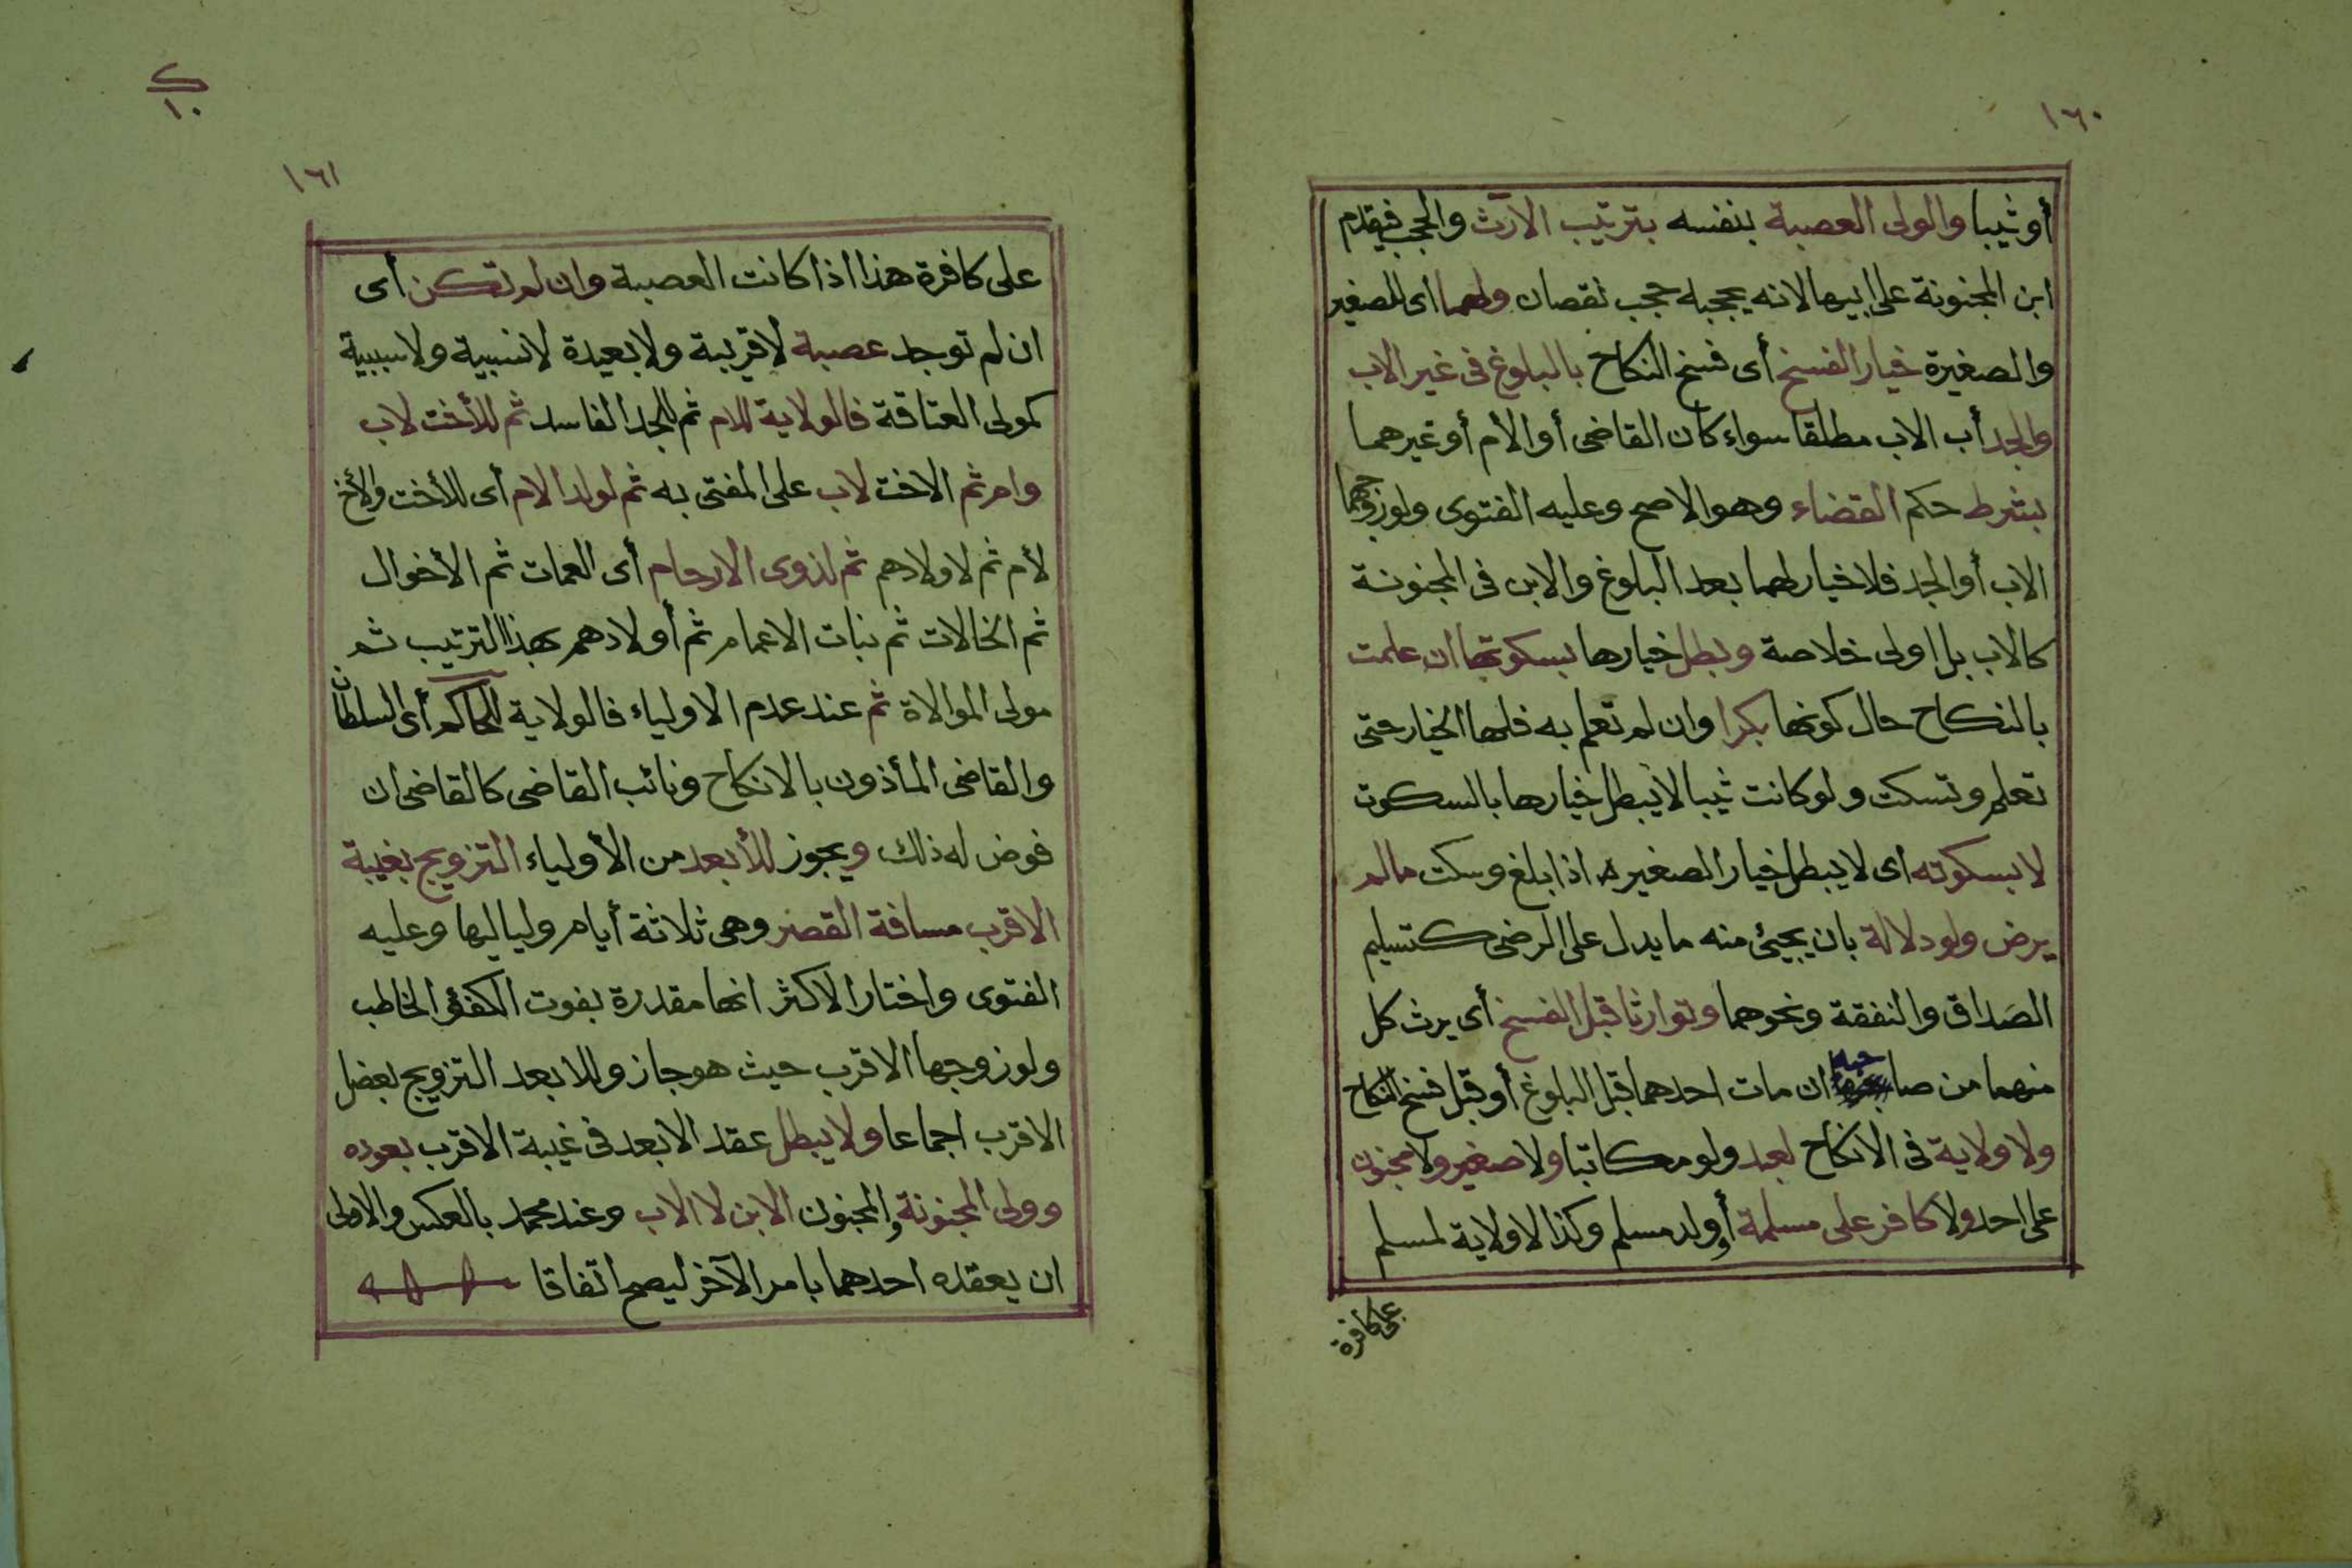 ١٦٠
أو ثيبا والولى العصبة بنفسه بترتيب الارث والحجب فيقدم
ابن المجنونة على ابيها لانه يحجبه حجب نقصان ولهما اى للصغير
والصغيرة خيار الفسخ أى فسخ النكاح بالبلوغ فى غير الاب
والجد أب الاب مطلقا سواء كان القاضى أو الأم أو غيرهما
بشرط حكم القضاء وهو الاصح وعليه الفتوى ولو زوجهما
الاب أو الجد فلا خيار لهما بعد البلوغ والابن فى المجنونة
كالاب بل اولى خلاصة وبطل خيارها بسكوتها ان علمت
بالنكاح حال كونها بكرا وان لم تعلم به فلها الخيار حتى
تعلم وتسكت ولو كانت ثيبا لا يبطل خيارها بالسكوت
لا بسكوته اى لا يبطل خيار الصغير اذا بلغ وسكت مالم
يرض ولو دلالة بان يجيئ منه ما يدل على الرضى كتسليم
الصَداق والنفقة ونحوهما وتوارثا قبل الفسخ أى يرث كل
منهما من صاحبه ان مات احدهما قبل البلوغ أو قبل فسخ النكاح
ولا ولاية فى الانكاح لعبد ولو مكاتبا ولا صغير ولا مجنون
على احد ولا كافر على مسلمة أو ولد مسلم وكذا لا ولاية لمسلم
على كافرة
ك
١٠
١٦١
على كافرة هذا اذا كانت العصبة وان لم تكن أى
ان لم توجد عصبة لا قريبة ولا بعيدة لا نسبية ولا سببية
كمولى العتاقة فالولاية للام ثم للجد الفاسد ثم للأخت لاب
وام ثم الاخت لاب على المفتى به ثم لولد الام أى للأخت والأخ
لأم ثم لاولادهم ثم لذوى الارحام أى العمات ثم الأخوال
ثم الخالات ثم بنات الاعمام ثم أولادهم بهذا الترتيب ثم
مولى الموالاة ثم عند عدم الاولياء فالولاية للحاكم أى السلطان
والقاضى المأذون بالانكاح ونائب القاضى كالقاضى ان
فوض له ذلك ويجوز للأبعد من الأولياء التزويج بغيبة
الاقرب مسافة القصر وهى ثلاثة أيام ولياليها وعليه
الفتوى واختار الاكثر انها مقدرة بفوت الكفؤ الخاطب
ولو زوجها الاقرب حيث هو جاز وللابعد التزويج بعضل
الاقرب اجماعا ولا يبطل عقد الابعد فى غيبة الاقرب بعوده
وولى المجنونة والمجنون الابن لا الاب وعند محمد بالعكس والاولى
ان يعقده احدهما بامر الآخر ليصح اتفاقا